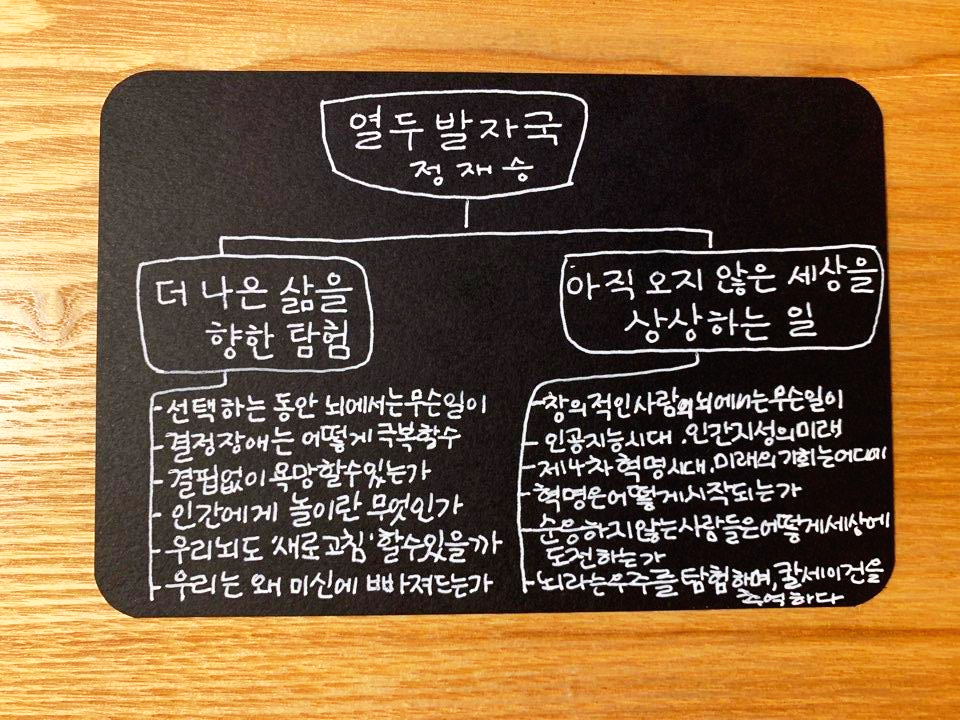 열두 발자국
정재승
더 나은 삶을
향한 탐험
- 선택하는 동안 뇌에서는 무슨일이
- 결정장애는 어떻게 극복할수
- 결핍없이 욕망할수있는가
- 인간에게 놀이란 무엇인가
- 우리뇌도 '새로고침' 할수있을까
- 우리는 왜 미신에 빠져드는가
아직 오지 않은 세상을
상상하는 일
- 창의적인사람의뇌에서는무슨일이
- 인공지능시대, 인간지성의미래
- 제4차혁명시대, 미래의 기회는어디에
- 혁명은어떻게시작되는가
- 순응하지않는사람들은어떻게세상에
도전하는가
- 뇌라는우주를 탐험하며, 칼세이건을
추억하다